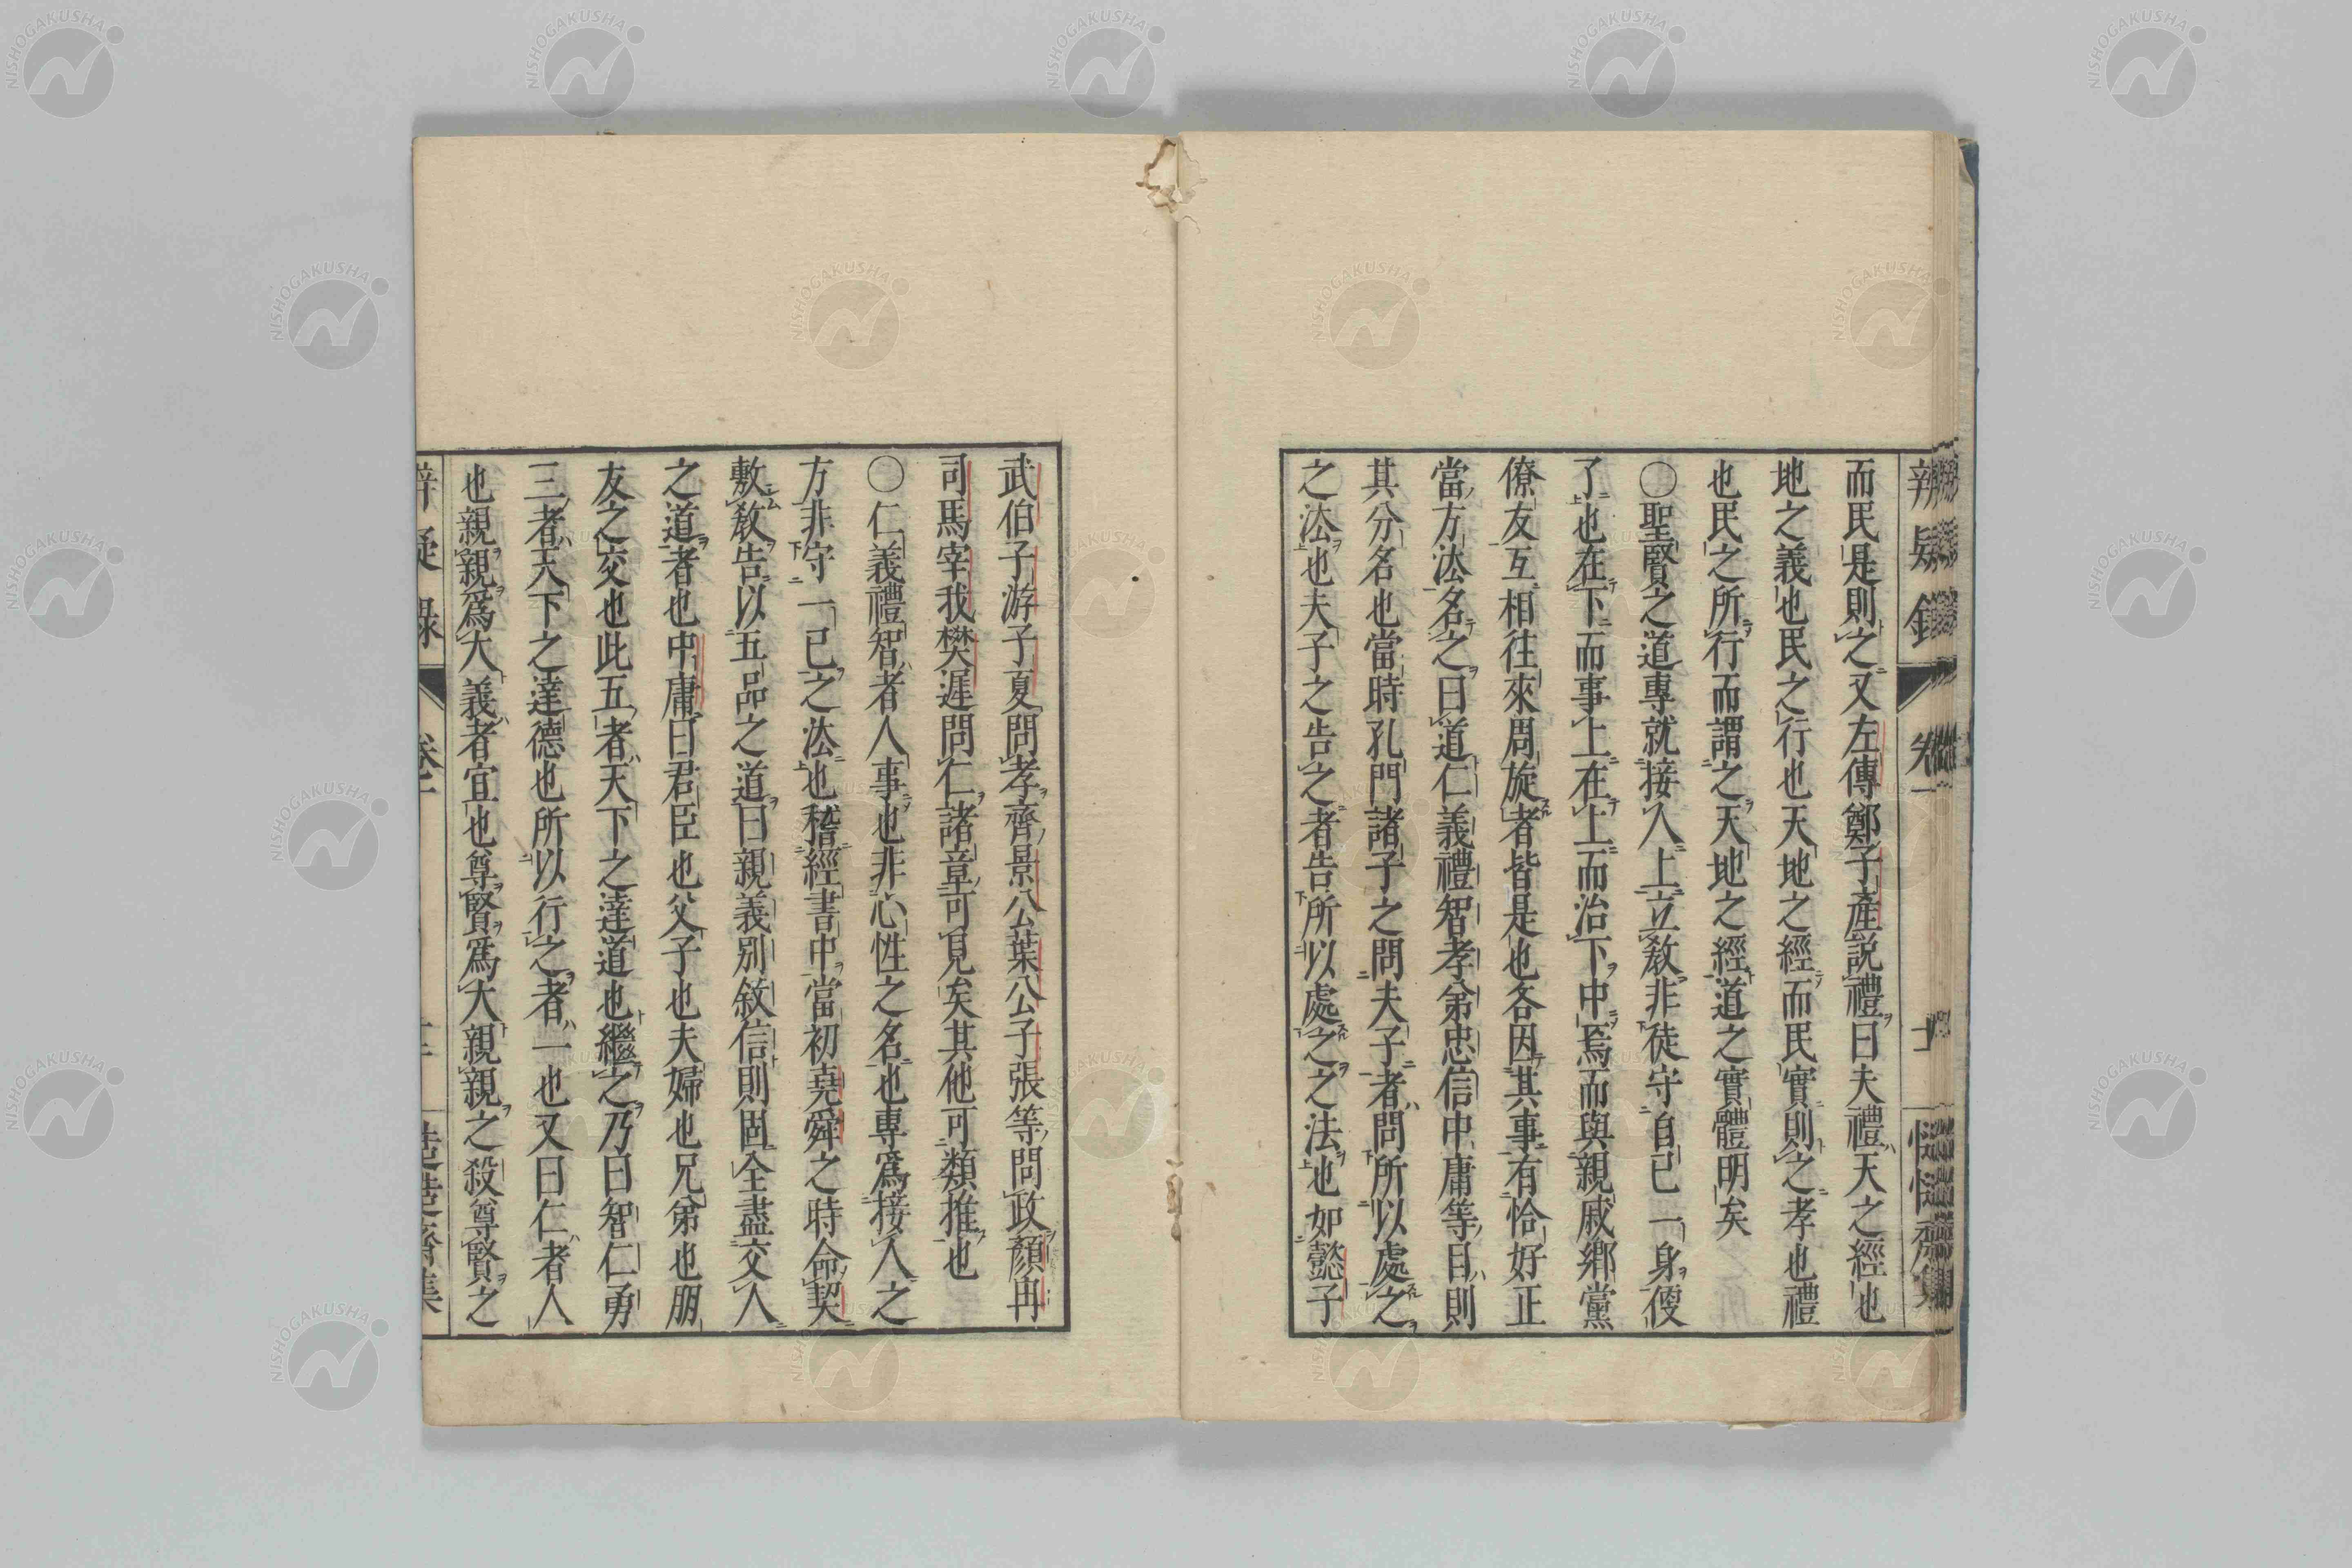 而民是則之又左傳鄭子產説禮曰夫禮天之經也
地之義也民之行也天地之經而民實則之孝也禮
也民之所行而謂之天地之經道之實體明矣
〇聖賢之道專就接人上立教非徒守自己一身便
了也在下而事上在上而治下中焉而與親戚鄉黨
僚友互相往來周旋者皆是也各因其事有恰好正
當方法名之曰道仁義禮智孝弟忠信中庸等目則
其分名也當時孔門諸子之問夫子者問所以處之
之法也夫子之告之者告所以處之之法也如懿子
武伯子游子夏問孝齊景公葉公子張等問政顏冉
司馬宰我樊遲問仁諸章可見矣其他可類推也
〇仁義禮智者人事也非心性之名也專爲接人之
方非守一己之法也稽經書中當初堯舜之時命契
敷教告以五品之道曰親義別敘信則固全盡交人
之道者也中庸曰君臣也父子也夫婦也兄弟也朋
友之交也此五者天下之達道也繼之乃曰智仁勇
三者天下之達德也所以行之者一也又曰仁者人
也親親爲大義者宜也尊賢爲大親親之殺尊賢之
NISHOGAKUSHA